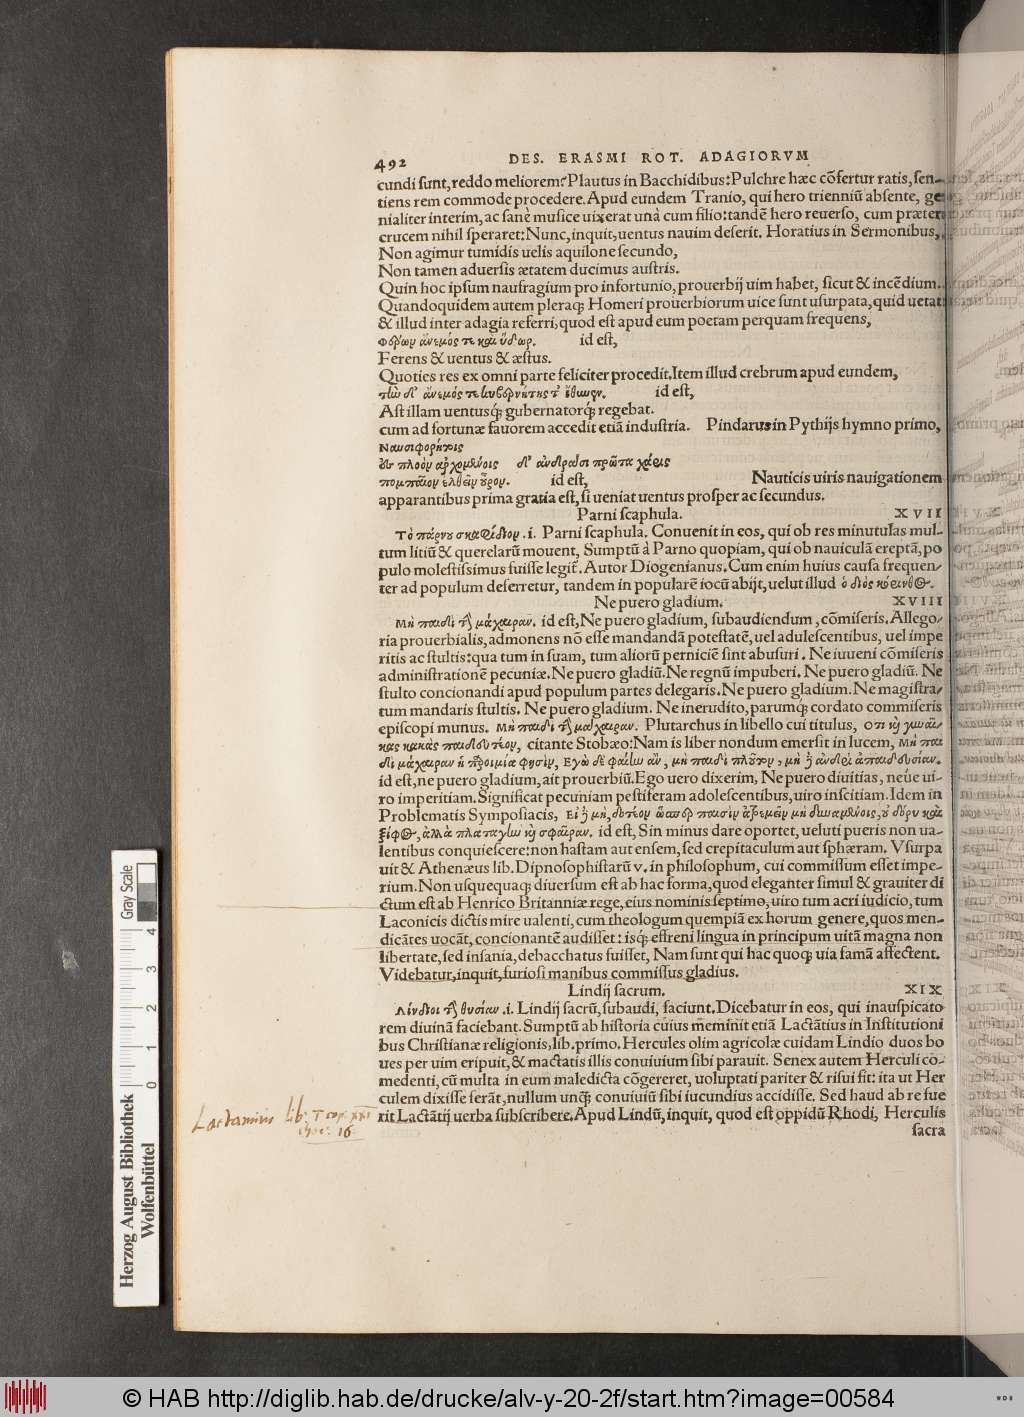 492 DES. ERASMI ROT. ADAGIORVM
cundi sunt, reddo meliorem? Plautus in Bacchidibus: Pulchre hæc cõfertur ratis, sen-
tiens rem commode procedere. Apud eundem Tranio, qui hero trienniũ absente, ge
nialiter interim, ac sanè musice uixerat unà cum filio: tandẽ hero reuerso, cum præter
crucem nihil speraret: Nunc, inquit, uentus nauim deserit. Horatius in Sermonibus,
Non agimur tumidis uelis aquilone secundo,
Non tamen aduersis ætatem ducimus austris.
Quin hoc ipsum naufragium pro infortunio, prouerbij uim habet, sicut & incẽdium.
Quandoquidem autem pleraq; Homeri prouerbiorum uice sunt usurpata, quid uetat
& illud inter adagia referri, quod est apud eum poetam perquam frequens,
Φέρων ἄνεμός τε καὶ ὕδωρ. id est,
Ferens & uentus & æstus.
Quoties res ex omni parte feliciter procedit. Item illud crebrum apud eundem,
τὴν δ' ἄνεμός τε κυβερνήτης τ' ἴθυνεν. id est,
Ast illam uentusq; gubernatorq; regebat.
cum ad fortunæ fauorem accedit etiã industria. Pindarus in Pythijs hymno primo,
Ναυσιφορήτοις
ἐν πλοὸν ἀρχομένοις δ' ἀνδράσι πρῶτα χάρις
πομπαῖον ἐλθεῖν οὖρον. id est, Nauticis uiris nauigationem
apparantibus prima gratia est, si ueniat uentus prosper ac secundus.
Parni scaphula. XVII
Τὸ πάρνου σκαφίδιον. i. Parni scaphula. Conuenit in eos, qui ob res minutulas mul-
tum litiũ & querelarũ mouent, Sumptũ à Parno quopiam, qui ob nauiculã ereptã, po
pulo molestissimus fuisse legit̃. Autor Diogenianus. Cum enim huius causa frequen-
ter ad populum deferretur, tandem in popularẽ iocũ abijt, uelut illud ὁ διὸς κόρινθος.
Ne puero gladium. XVIII
Μὴ παιδὶ τὴν μάχαιραν. id est, Ne puero gladium, subaudiendum, cõmiseris. Allego-
ria prouerbialis, admonens nõ esse mandandã potestatẽ, uel adulescentibus, uel impe
ritis ac stultis: qua tum in suam, tum aliorũ perniciẽ sint abusuri. Ne iuueni cõmiseris
administrationẽ pecuniæ. Ne puero gladiũ. Ne regnũ impuberi. Ne puero gladiũ. Ne
stulto concionandi apud populum partes delegaris. Ne puero gladium. Ne magistra-
tum mandaris stultis. Ne puero gladium. Ne inerudito, parumq; cordato commiseris
episcopi munus. Μὴ παιδὶ τὴν μάχαιραν. Plutarchus in libello cui titulus, Ὅτι καὶ γυναῖ-
κας κακὰς παιδευτέον, citante Stobæo: Nam is liber nondum emersit in lucem, Μὴ παι
δὶ μάχαιραν ἡ παροιμία φησὶν, Ἐγὼ δὲ φαίην ἂν, μὴ παιδὶ πλοῦτον, μὴ δὲ ἀνδρὶ ἀπαιδευσίαν.
id est, ne puero gladium, ait prouerbiũ. Ego uero dixerim, Ne puero diuitias, neue ui-
ro imperitiam. Significat pecuniam pestiferam adolescentibus, uiro inscitiam. Idem in
Problematis Symposiacis, Εἰ δὲ μὴ, δοτέον ὥσπερ παισὶν ἀτρεμεῖν μὴ δυναμένοις, οὐ δόρυ καὶ
ξίφος, ἀλλὰ πλαταγὴν καὶ σφαῖραν. id est, Sin minus dare oportet, ueluti pueris non ua-
lentibus conquiescere: non hastam aut ensem, sed crepitaculum aut sphæram. Vsurpa
uit & Athenæus lib. Dipnosophistarũ v. in philosophum, cui commissum esset impe-
rium. Non usquequaq; diuersum est ab hac forma, quod eleganter simul & grauiter di
ctum est ab Henrico Britanniæ rege, eius nominis septimo, uiro tum acri iudicio, tum
Laconicis dictis mire ualenti, cum theologum quempiã ex horum genere, quos men-
dicãtes uocãt, concionantẽ audisset: isq; effreni lingua in principum uitã magna non
libertate, sed insania, debacchatus fuisset, Nam sunt qui hac quoq; uia famã affectent.
Videbatur, inquit, furiosi manibus commissus gladius.
Lindij sacrum. XIX
Λίνδιοι τὴν θυσίαν. i. Lindij sacrũ, subaudi, faciunt. Dicebatur in eos, qui inauspicato
rem diuinã faciebant. Sumptũ ab historia cuius meminit etiã Lactãtius in Institutioni
bus Christianæ religionis, lib. primo. Hercules olim agricolæ cuidam Lindio duos bo
ues per uim eripuit, & mactatis illis conuiuium sibi parauit. Senex autem Herculi co-
medenti, cũ multa in eum maledicta cõgereret, uoluptati pariter & risui fit: ita ut Her
culem dixisse ferãt, nullum unq̃ conuiuiũ sibi iucundius accidisse. Sed haud ab re fue
rit Lactãtij uerba subscribere. Apud Lindũ, inquit, quod est oppidũ Rhodi, Herculis
sacra
Lactantius lib. I cap. XXI
16
Gray Scale
0 1 2 3 4
Herzog August Bibliothek
Wolfenbüttel
© HAB http://diglib.hab.de/drucke/alv-y-20-2f/start.htm?image=00584